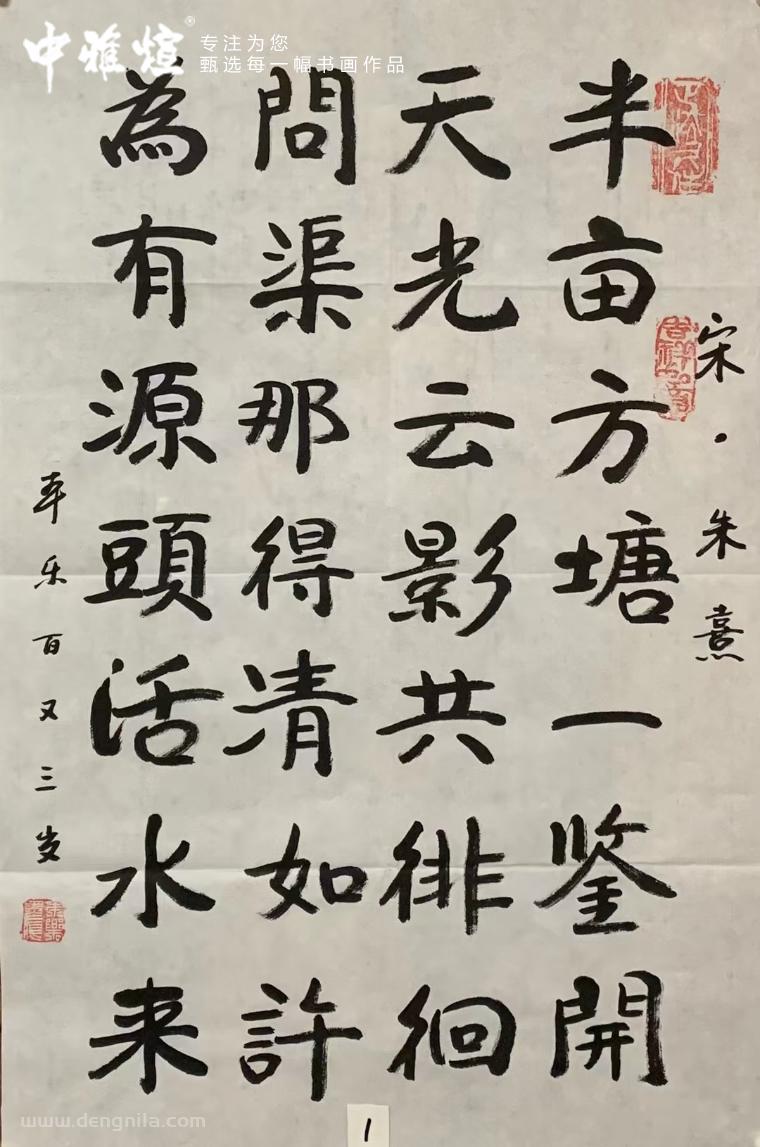 中雅煊®
专注为您
甄选每一幅书画作品
宋·朱熹
半亩方塘一鉴開
天光云影共徘徊
問渠那得清如許
為有源頭活水来
乐百又三岁
1
www.dengnila.com